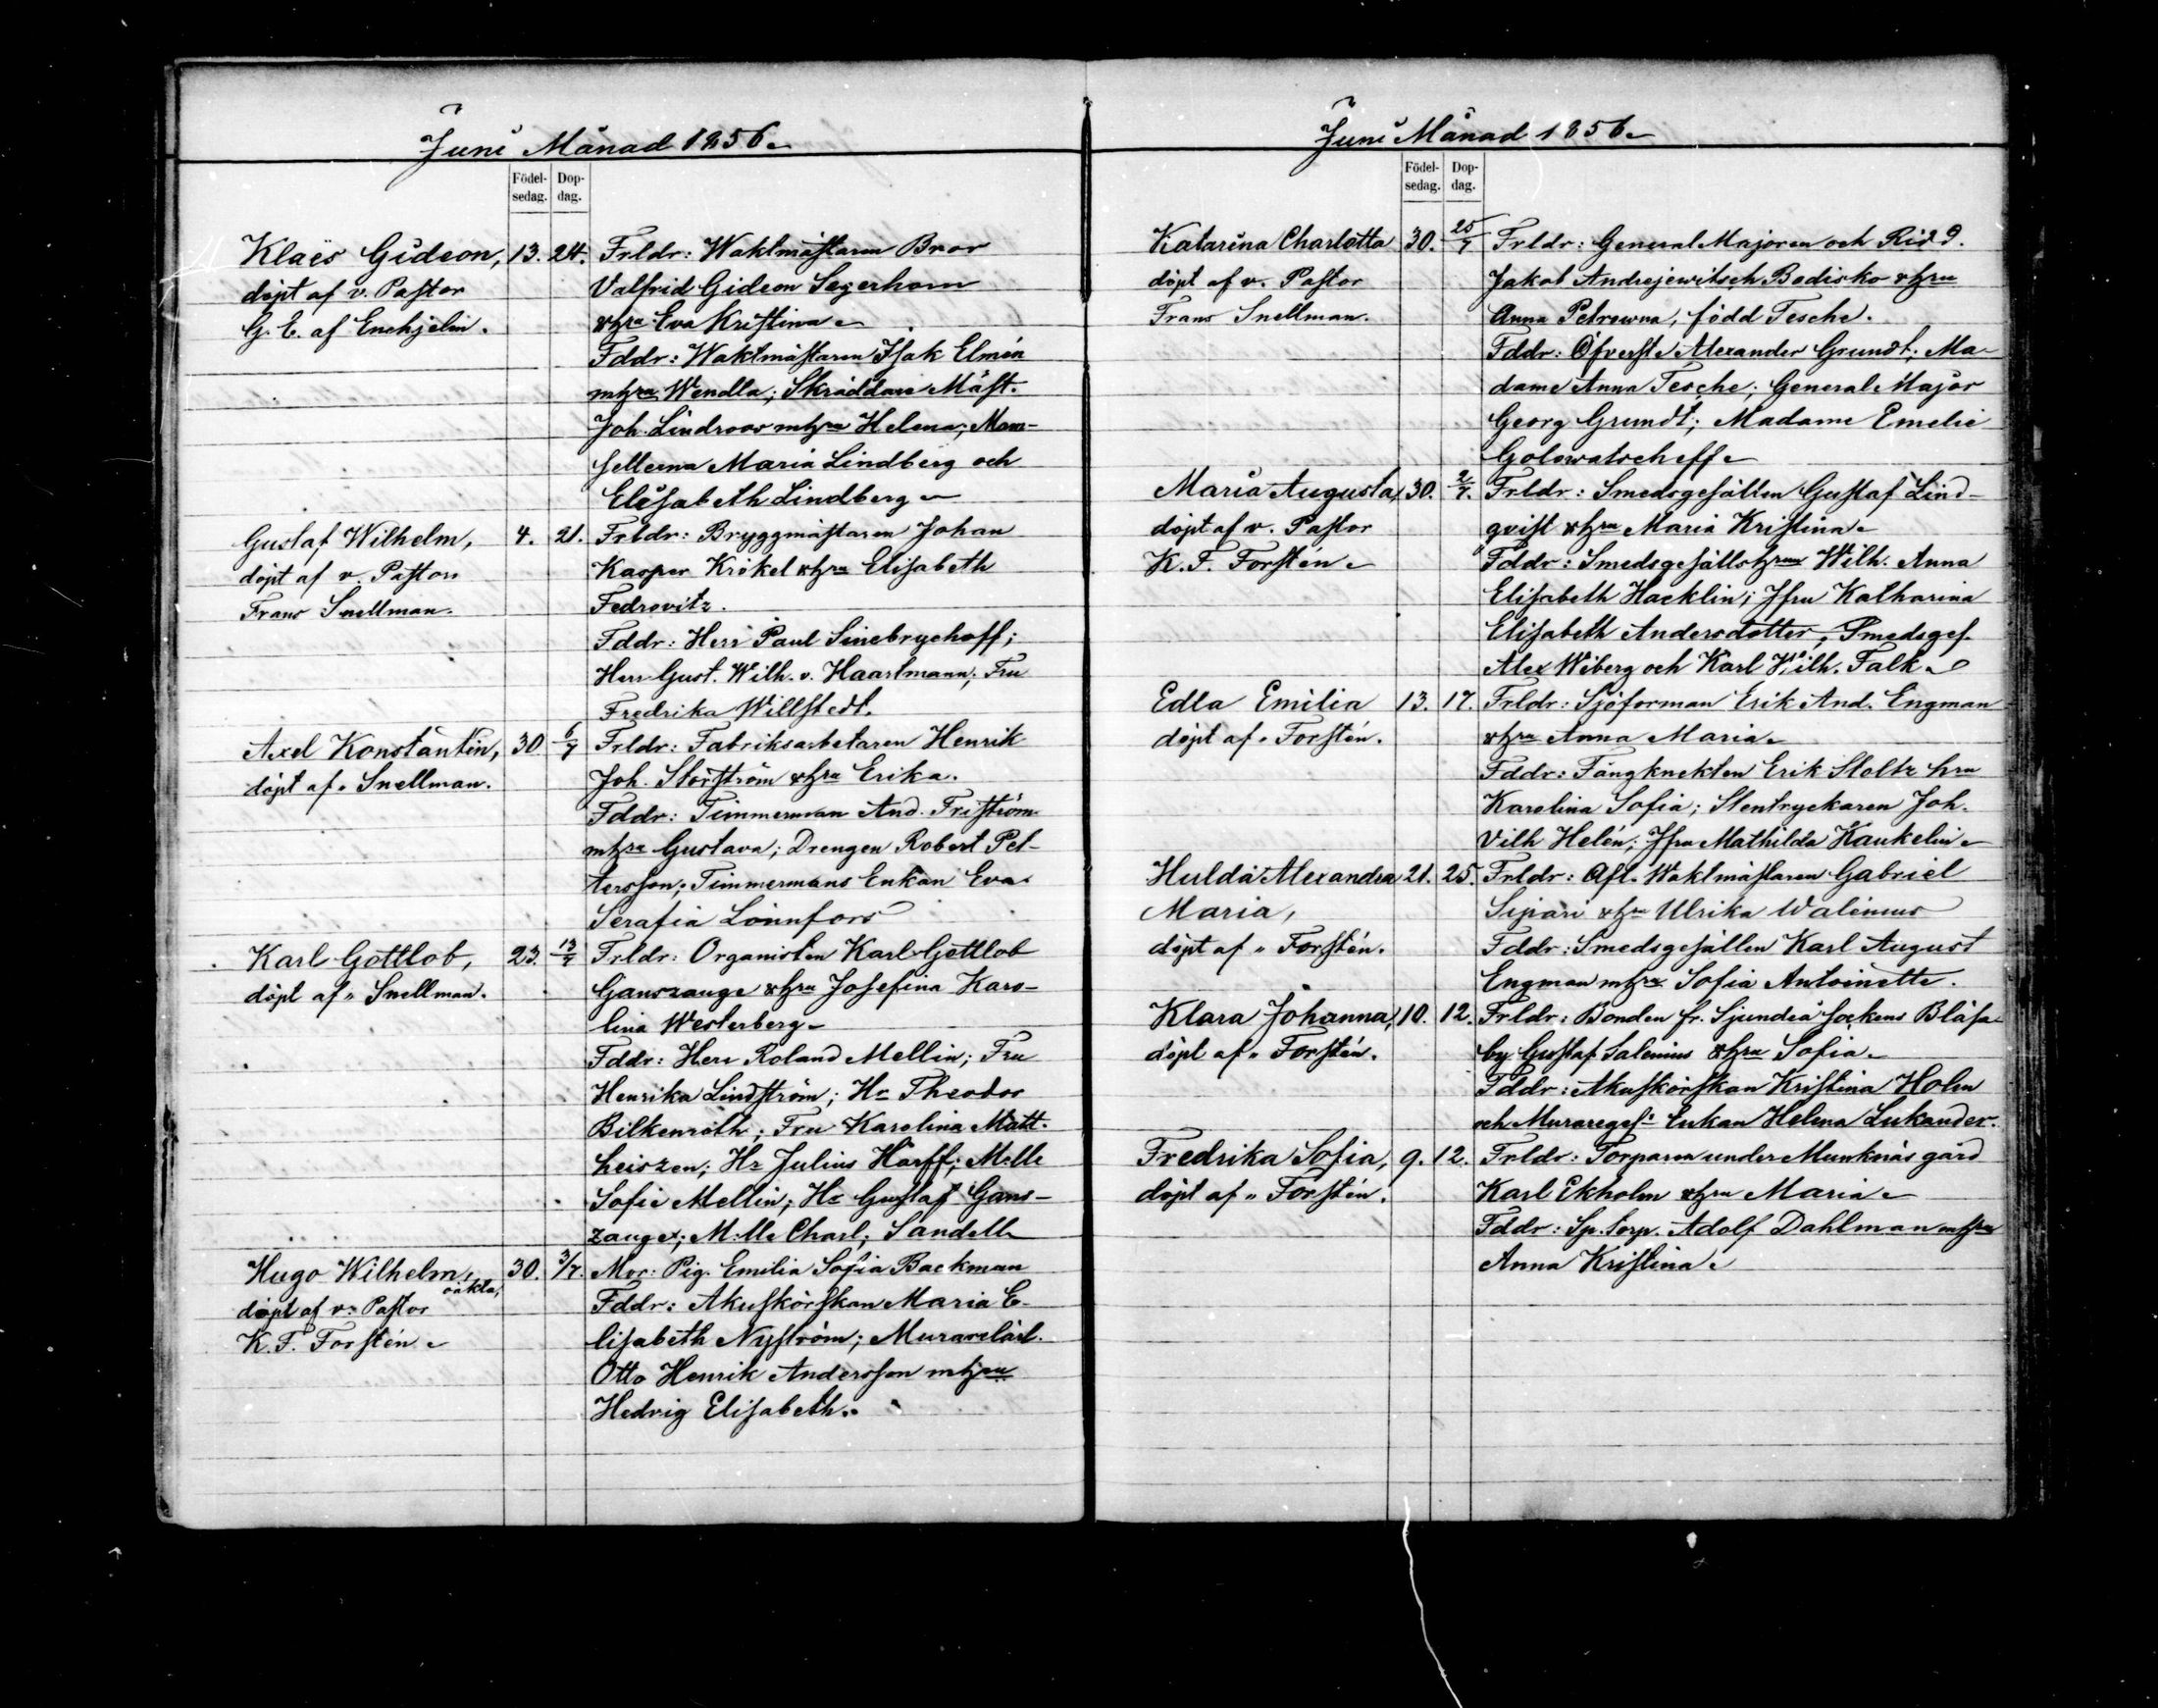 Juni Månad 1856.
Födel-
sedag.
Dop-
dag.
Klaës Gideon, 13. 24. Frldr: Waktmästaren Bror
döpt af v. Pastor Valfrid Gideon Segerhom
G. E. af Enehjelm. &hru Eva Kristina.
Fddr: Waktmästaren Isak Elmén
mhru Wendla; Skräddare Mäst.
Joh. Lindroos mhru Helena; Mam-
sellerna Maria Lindberg och
Elisabeth Lindberg
Gustaf Wilhelm, 4. 21. Frldr: Bryggmästaren Johan
döpt af v. Pastor Kasper Krökel &hru Elisabeth
Frans Snellman. Fedrovitz.
Fddr: Herr Paul Sinebrychoff;
Herr Gust. Wilh. v. Haartmann; Fru
Fredrika Willstedt.
Axel Konstantin, 30. 6/7 Frldr: Fabriksarbetaren Henrik
döpt af " Snellman. Joh. Storström &hru Erika.
Fddr: Timmerman And. Friström
mhru Gustava; Drengen Robert Pet-
tersson; Timmermans Enkan Eva
Serafia Lönnfors
Karl Gottlob, 23. 13/7 Frldr: Organisten Karl Gottlob
döpt af " Snellman. Ganszauge &hru Josefina Karo-
lina Westerberg
Fddr: Herr Roland Mellin; Fru
Henrika Lindström; Hr Theodor
Bilkenroth; Fru Karolina Matt-
heiszen; Hr Julius Harff; M:lle
Sofie Mellin; Hr Gustaf Gans-
zauge; M:lle Charl. Sandell
Hugo Wilhelm, 30. 3/7. Mor: Pig. Emilia Sofia Backman
oäkta,
döpt af v. Pastor Fddr: Akuskörskan Maria E-
K. F. Forstén lisabeth Nyström; Murarelärl.
Otto Henrik Andersson mhru
Hedvig Elisabeth.
Juni Månad 1856.
Födel-
sedag.
Dop-
dag.
Katarina Charlotta 30. 25/7 Frldr: General Majoren och Ridd.
döpt af v. Pastor Jakob Andrejewitsch Bodisko &hru
Frans Snellman. Anna Petrowna, född Tesche.
Fddr: Öfverste Alexander Grundt; Ma-
dame Anna Tesche; General Major
Georg Grundt; Madame Emelie
Golowatscheff
Maria Augusta, 30. 2/7. Frldr: Smedsgesällen Gustaf Lind-
döpt af v. Pastor qvist &hru Maria Kristina
K. F. Forstén Fddr: Smedsgesällshrun Wilh. Anna
Elisabeth Hacklin; Jfru Katharina
Elisabeth Andersdotter, Smedsges.
Alex Wiberg och Karl Wilh. Falk
Edla Emilia 13. 17. Frldr: Sjöforman Erik And. Engman
döpt af " Forstén. &hru Anna Maria
Fddr: Fångknekten Erik Stoltz hru
Karolina Sofia; Stentryckaren Joh.
Vilh Helén; Jfru Mathilda Kaukelin
Hulda Alexandra 21. 25. Frldr: Afl. Waktmästaren Gabriel
Maria, Sipari &hru Ulrika Walenius
döpt af " Forstén. Fddr: Smedsgesällen Karl August
Engman mhru Sofia Antoinette.
Klara Johanna, 10. 12. Frldr: Bonden fr. Sjundeå sockens Blåsa
döpt af " Forstén. by Gustaf Salenius &hru Sofia.
Fddr: Akuskörskan Kristina Holm
och Murareges: Enkan Helena Lukander.
Fredrika Sofia, 9. 12. Frldr: Torparen under Munknäs gård
döpt af " Forstén. Karl Ekholm &hru Maria
Fddr: Sp. Torp. Adolf Dahlman mhru
Anna Kristina.